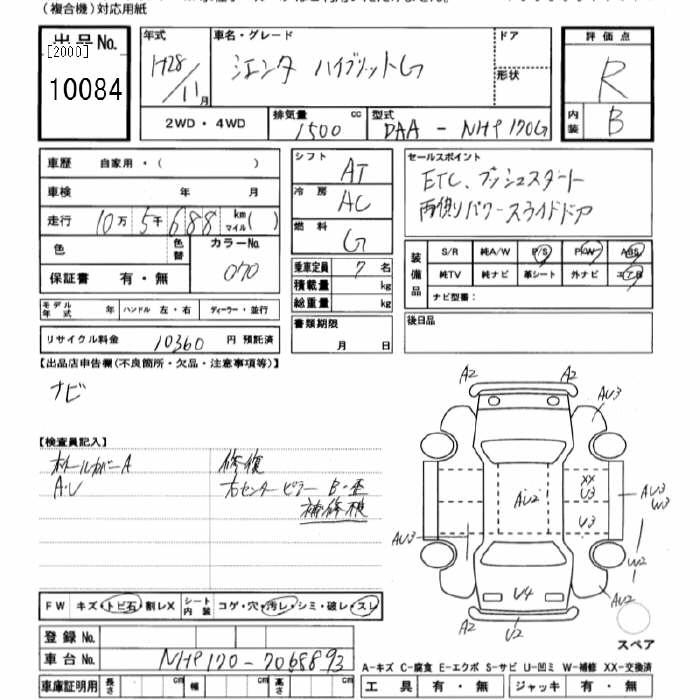 (複合機)対応用紙
出品No.
[2000]
10084
年式
H28/11月
車名・グレード
シエンタ ハイブリットG
ドア
形状
評価点
R
内装
B
2WD・4WD
排気量
1500
cc
型式
DAA-NHP170G
車歴 自家用・( )
車検 年 月
走行 10万5千688 km マイル( )
色
色替
カラーNo.
070
保証書 有・無
モデル年式 年 ハンドル 左・右 ディーラー・並行
リサイクル料金 10360 円 預託済
シフト
AT
冷房
AC
燃料
G
乗車定員 7名
積載量 kg
総重量 kg
書類期限
月 日
セールスポイント
ETC、プッシュスタート
両側パワースライドドア
装備品
S/R 純A/W P/S P/W ABS
純TV 純ナビ 革シート 外ナビ エアB
ナビ型番:
後日品
【出品店申告欄(不良箇所・欠品・注意事項等)】
ナビ
【検査員記入】
ホイールカバーA
A・U
修復
右センターピラー B・歪
補修根
A2 A2
AU3
AU2
XX
U3
U3
AU3
W3
AU3
W2
AU2
U4
A2
U2
スペア
FW キズ・トビ石・割レX
シート内装 コゲ・穴・汚レ・シミ・破レ・スレ
登録No.
車台No. NHP170-7068893
車庫証明用 長さ cm 幅 cm 高さ cm
A-キズ C-腐食 E-エクボ S-サビ U-凹ミ W-補修 XX-交換済
工具 有・無 ジャッキ 有・無